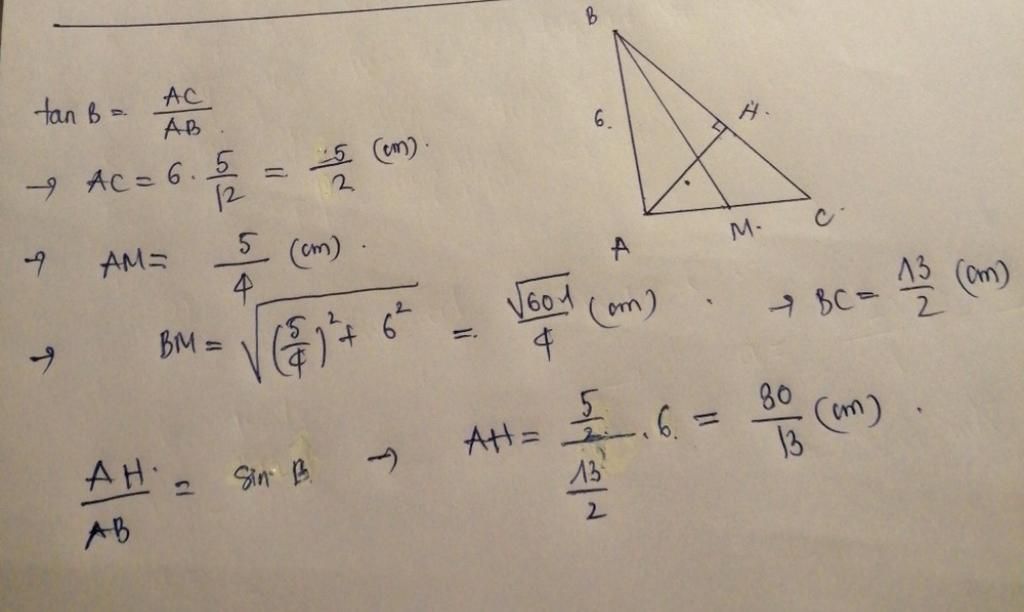 tan B = AC/AB.
→ AC = 6 · 5/12 = 5/2 (cm).
→ AM = 5/4 (cm).
→ BM = √((5/4)² + 6²) = √601/4 (cm). → BC = 13/2 (cm)
AH/AB = sin B → AH = (5/2)/(13/2) . 6 = 30/13 (cm).
B
6.
H.
A
M.
C.